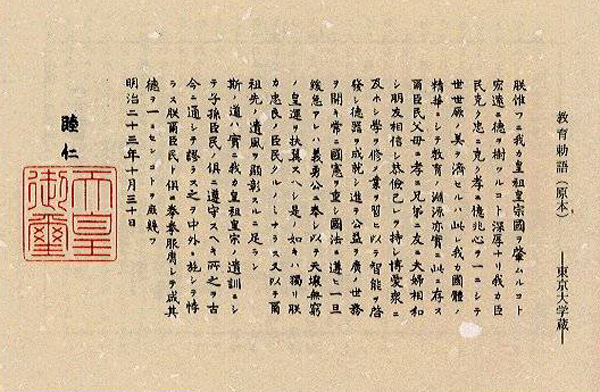 教育勅語(原本)
—東京大学蔵—
朕惟フニ我カ皇祖皇宗國ヲ肇ムルコト
宏遠ニ德ヲ樹ツルコト深厚ナリ我カ臣
民克ク忠ニ克ク孝ニ億兆心ヲ一ニシテ
世世厥ノ美ヲ濟セルハ此レ我カ國體ノ
精華ニシテ教育ノ淵源亦實ニ此ニ存ス
爾臣民父母ニ孝ニ兄弟ニ友ニ夫婦相和
シ朋友相信シ恭儉己レヲ持シ博愛衆ニ
及ホシ學ヲ修メ業ヲ習ヒ以テ智能ヲ啓
發シ德器ヲ成就シ進テ公益ヲ廣メ世務
ヲ開キ常ニ國憲ヲ重シ國法ニ遵ヒ一旦
緩急アレハ義勇公ニ奉シ以テ天壤無窮
ノ皇運ヲ扶翼スヘシ是ノ如キハ獨リ朕
カ忠良ノ臣民タルノミナラス又以テ爾
祖先ノ遺風ヲ顯彰スルニ足ラン
斯ノ道ハ實ニ我カ皇祖皇宗ノ遺訓ニシ
テ子孫臣民ノ俱ニ遵守スヘキ所之ヲ古
今ニ通シテ謬ラス之ヲ中外ニ施シテ悖
ラス朕爾臣民ト俱ニ拳拳服膺シテ咸其
德ヲ一ニセンコトヲ庶幾フ
明治二十三年十月三十日
睦仁
天皇
御璽